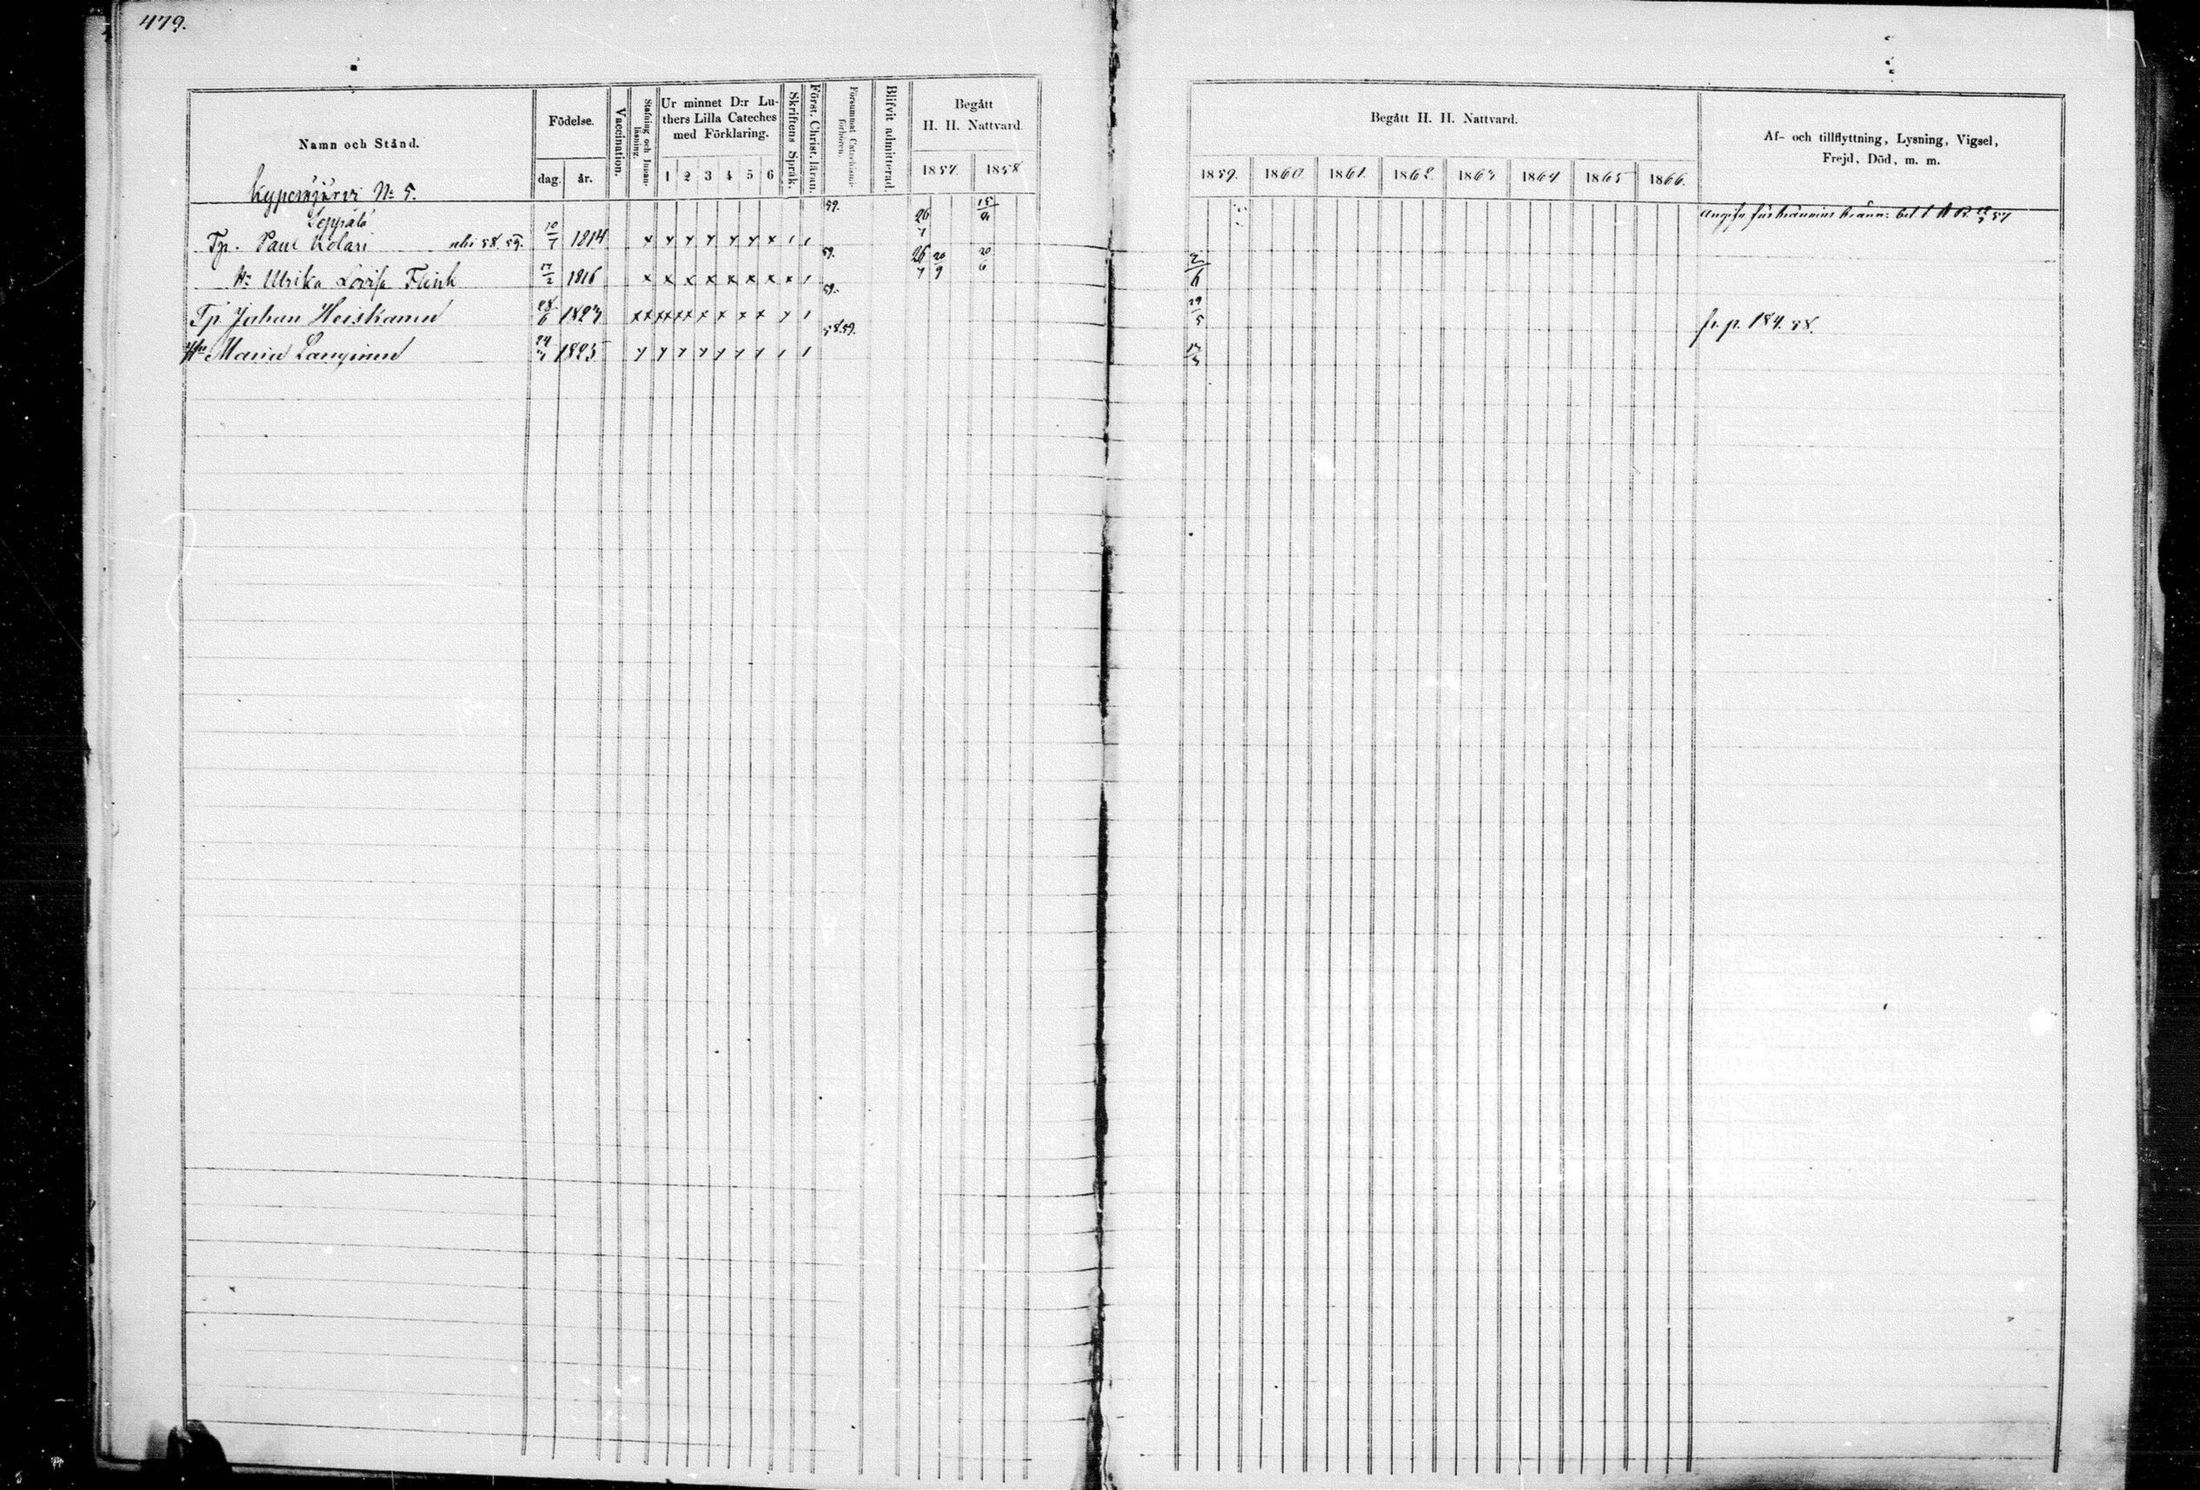 479.
Namn och Stånd.
Födelse.
dag.
år.
Vaccination.
Stafning och Innanläsning.
Ur minnet D:r Lu-
thers Lilla Cateches
med Förklaring.
1 2 3 4 5 6
Skriftens Språk.
Först. Christ. läran.
Försummat Catechismi-
förhören.
Blifvit admitterad.
Begått
H. H. Nattvard.
1857 1858
Begått H. H. Nattvard.
1859. 1860 1861. 1862. 1863 1864 1865 1866.
Af- och tillflyttning, Lysning, Vigsel,
Frejd, Död, m. m.
N:o 5.
Tp. Paul Kolari 58. 59. 10/7 1814 x y y y y y x 1 1 59. 26/7
H:u Ulrika Lovisa Flink 17/2 1816 x x x x x x x x 1 59. 26/7 20/9 20/6 2/6
Tp Johan Heiskanen 28/6 1823 59. 29/5 fr. p. 184. 58.
H:u Maria 24 1825 y y y y y y y 1 1 58.59. 17